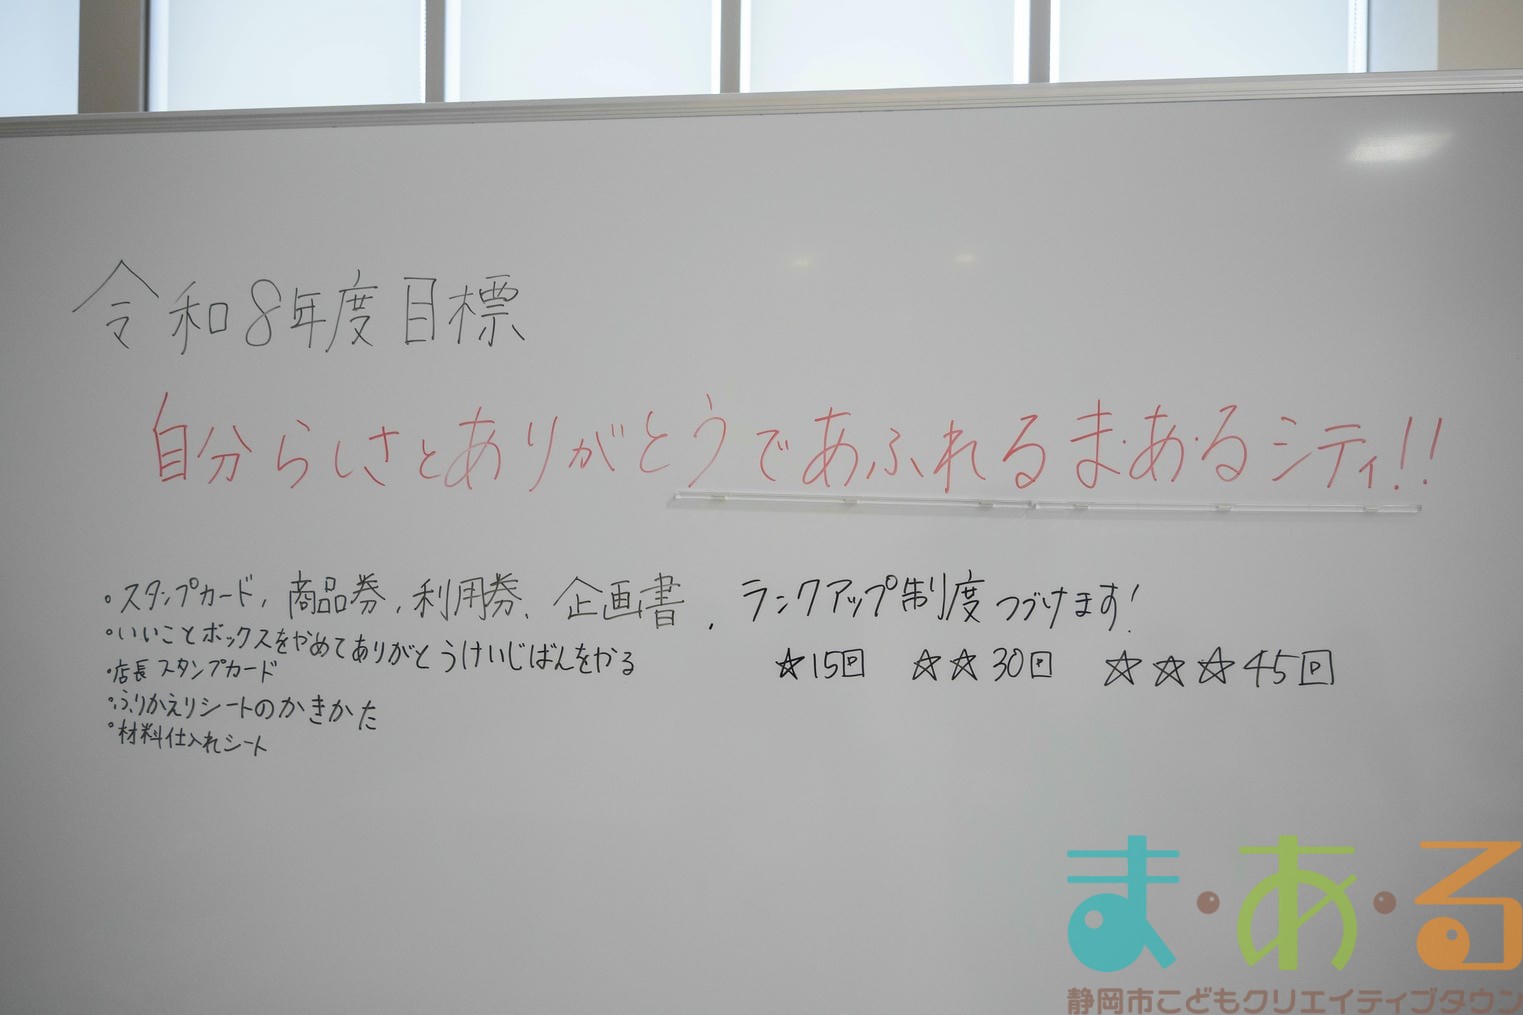 令和8年度目標
自分らしさとありがとうであふれるま・あ・るシティ!!
・スタンプカード,商品券,利用券、企画書,ランクアップ制度つづけます!
・いいことボックスをやめてありがとうけいじばんをやる
★15回 ☆☆30回 ☆☆☆45回
・店長スタンプカード
・ふりかえりシートのかきかた
・材料仕入れシート
ま・あ・る
静岡市こどもクリエイティブタウン